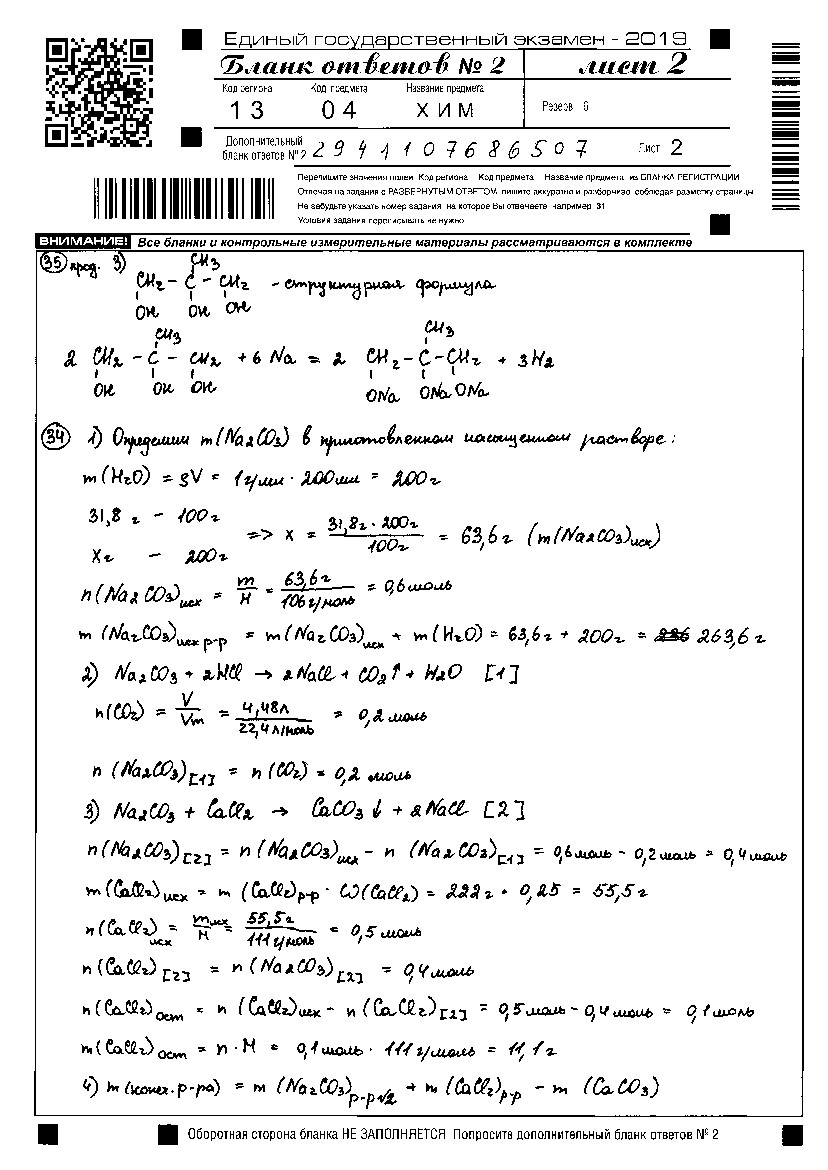 Единый государственный экзамен - 2019
Бланк ответов № 2 лист 2
Код региона Код предмета Название предмета
13 04 ХИМ Резерв 6
Дополнительный
бланк ответов № 2 2941107686507 Лист 2
Перепишите значения полей Код региона Код предмета Название предмета из БЛАНКА РЕГИСТРАЦИИ
Отвечая на задания с РАЗВЕРНУТЫМ ОТВЕТОМ пишите аккуратно и разборчиво соблюдая разметку страницы
Не забудьте указать номер задания на которое Вы отвечаете например 31
Условия задания переписывать не нужно
ВНИМАНИЕ! Все бланки и контрольные измерительные материалы рассматриваются в комплекте
35 прод. 3)
CH3
CH2 - C - CH2 - структурная формула
OH OH OH
CH3 CH3
2 CH2 - C - CH2 + 6 Na = 2 CH2 - C - CH2 + 3H2
OH OH OH ONa ONa ONa
34 1) Определим m(Na2CO3) в приготовленном насыщенном растворе:
m(H2O) = ρV = 1г/мл · 200мл = 200г
31,8 г - 100г
Xг - 200г
=> X = 31,8г·200г / 100г = 63,6г (m(Na2CO3)исх)
n(Na2CO3)исх = m/M = 63,6г / 106г/моль = 0,6моль
m(Na2CO3)исх р-р = m(Na2CO3)исх + m(H2O) = 63,6г + 200г = 263,6г
2) Na2CO3 + 2HCl → 2NaCl + CO2↑ + H2O [1]
n(CO2) = V/Vm = 4,48л / 22,4л/моль = 0,2моль
n(Na2CO3)[1] = n(CO2) = 0,2 моль
3) Na2CO3 + CaCl2 → CaCO3↓ + 2NaCl [2]
n(Na2CO3)[2] = n(Na2CO3)исх - n(Na2CO3)[1] = 0,6моль - 0,2моль = 0,4моль
m(CaCl2)исх = m(CaCl2)р-р · ω(CaCl2) = 222г · 0,25 = 55,5г
n(CaCl2)исх = mисх/M = 55,5г / 111г/моль = 0,5моль
n(CaCl2)[2] = n(Na2CO3)[2] = 0,4моль
n(CaCl2)ост = n(CaCl2)исх - n(CaCl2)[2] = 0,5моль - 0,4моль = 0,1моль
m(CaCl2)ост = n·M = 0,1моль · 111г/моль = 11,1г
4) m(конеч. р-ра) = m(Na2CO3)р-р√2 + m(CaCl2)р-р - m(CaCO3)
Оборотная сторона бланка НЕ ЗАПОЛНЯЕТСЯ Попросите дополнительный бланк ответов № 2